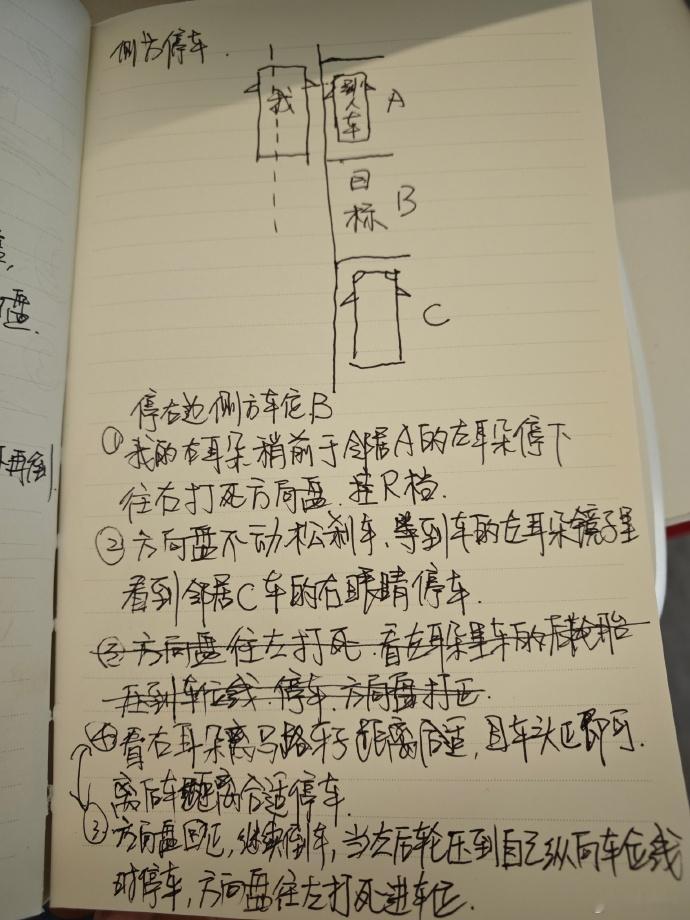 侧方停车.
我
别人车
A
目标
B
C
停右边侧方车位B
①我的右耳朵稍前于邻居A的左耳朵停下
往右打死方向盘.挂R档.
②方向盘不动松刹车、等到车的左耳朵镜子里
看到邻居C车的右眼睛停车.
③方向盘往左打死.看左耳朵里车的后轮胎
压到车位线.停车.方向盘打正.
④看右耳朵离马路牙子距离合适,且车头正即可.
离后车距离合适停车.
③方向盘回正,继续倒车,当左后轮压到自己纵向车位线
时停车,方向盘往左打死进车位.
盘.
不再倒